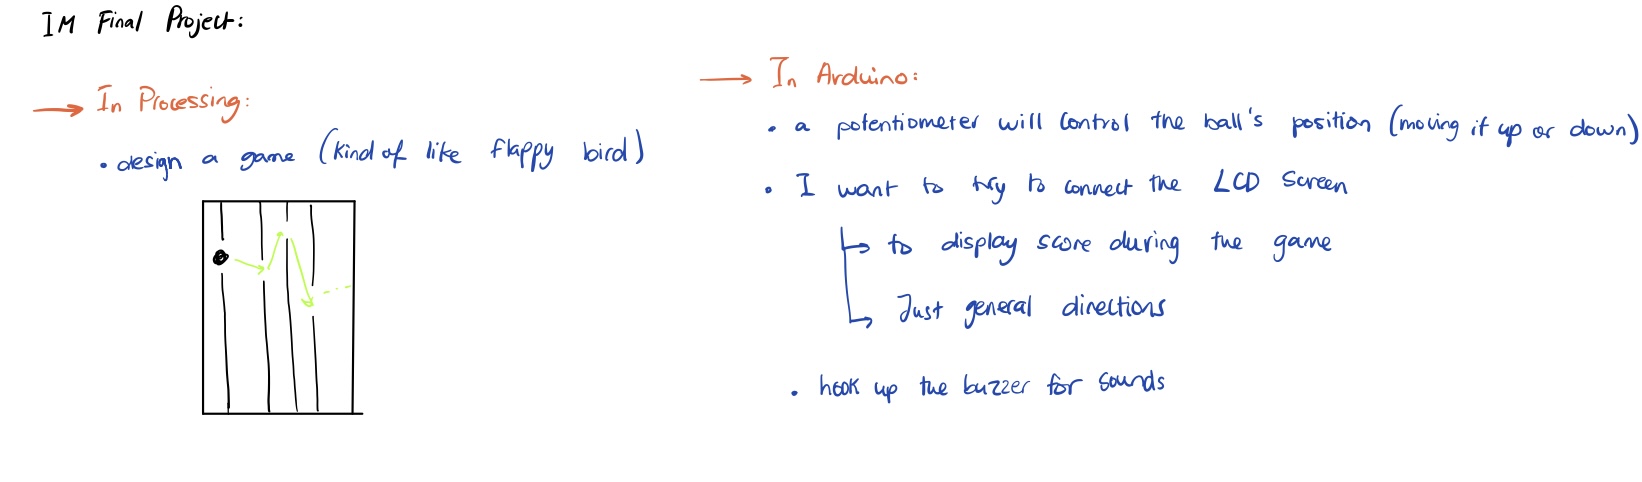 IM Final Project:
→ In Processing:
• design a game (kind of like flappy bird)
→ In Arduino:
• a potentiometer will control the ball's position (moving it up or down)
• I want to try to connect the LCD screen
↳ to display score during the game
↳ Just general directions
• hook up the buzzer for sounds